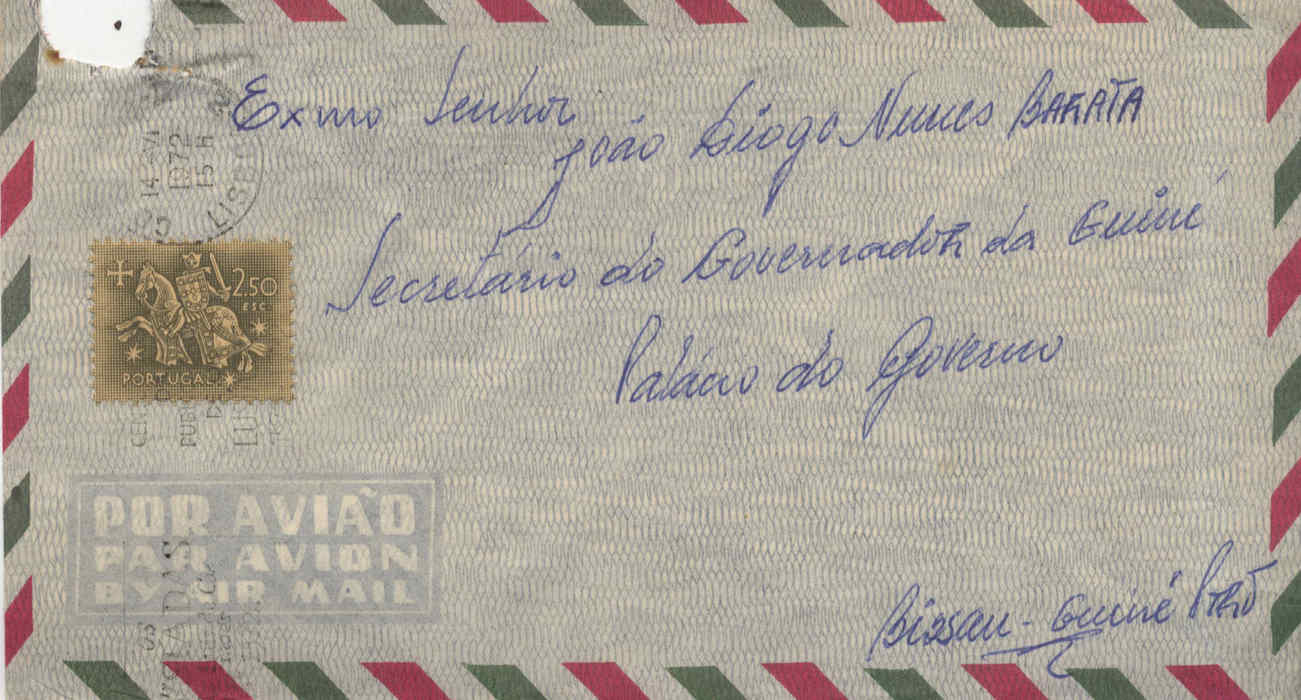 Exmo Senhor
João Diogo Nunes BARATA
Secretário do Governador da Guiné
Palácio do Governo
Bissau - Guiné
14 VI
1972
15 H
LISBO
2.50
ESC.
PORTUGAL
POR AVIÃO
PAR AVION
BY AIR MAIL